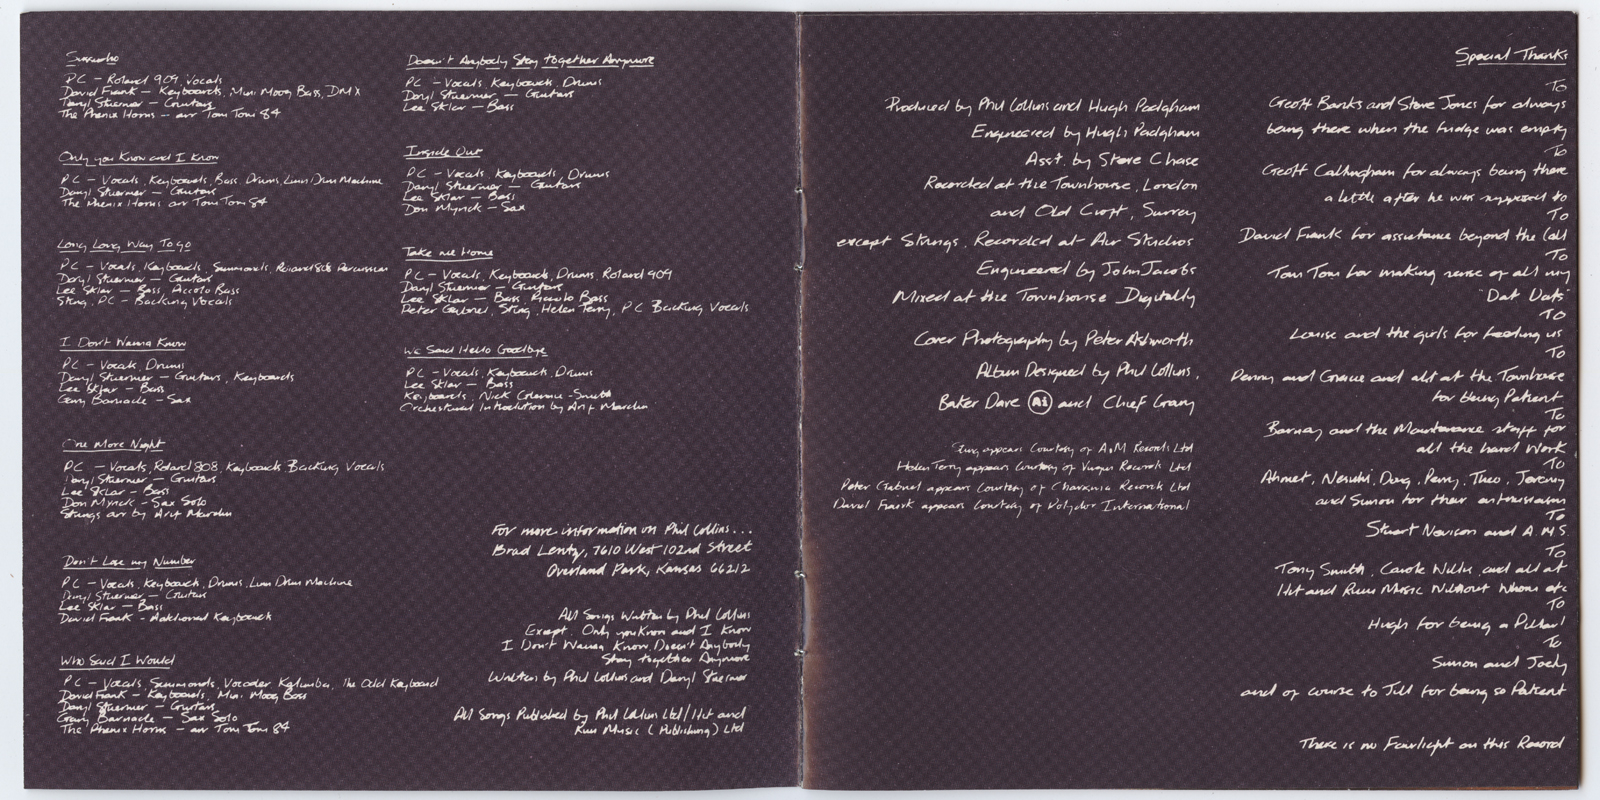 Sussudio
PC - Roland 909 Vocals
David Frank - Keyboards, Mini Moog Bass, DMX
Daryl Stuermer - Guitars
The Phenix Horns - arr Tom Tom 84
Only you Know and I Know
PC - Vocals, Keyboards, Bass, Drums, Linn Drum Machine
Daryl Stuermer - Guitars
The Phenix Horns arr Tom Tom 84
Long Long Way To go
PC - Vocals, Keyboards, Simmonds, Roland 808 Percussion
Daryl Stuermer - Guitars
Lee Sklar - Bass, Piccolo Bass
Sting, PC - Backing Vocals
I Don't Wanna Know
PC - Vocals, Drums
Daryl Stuermer - Guitars, Keyboards
Lee Sklar - Bass
Gary Barnacle - Sax
One More Night
PC - Vocals, Roland 808, Keyboards Backing Vocals
Daryl Stuermer - Guitars
Lee Sklar - Bass
Don Myrick - Sax Solo
Strings arr by Arif Mardin
Don't Lose my Number
PC - Vocals, Keyboards, Drums, Linn Drum Machine
Daryl Stuermer - Guitars
Lee Sklar - Bass
David Frank - Additional Keyboards
Who Said I Would
PC - Vocals, Simmonds, Vocoder Kalimba, The Odd Keyboard
David Frank - Keyboards, Mini Moog Bass
Daryl Stuermer - Guitars
Gary Barnacle - Sax Solo
The Phenix Horns - arr Tom Tom 84
Doesn't Anybody Stay together Anymore
PC - Vocals, Keyboards, Drums
Daryl Stuermer - Guitars
Lee Sklar - Bass
Inside Out
PC - Vocals, Keyboards, Drums
Daryl Stuermer - Guitars
Lee Sklar - Bass
Don Myrick - Sax
Take me Home
PC - Vocals, Keyboards, Drums, Roland 909
Daryl Stuermer - Guitars
Lee Sklar - Bass, Piccolo Bass
Peter Gabriel, Sting, Helen Terry, PC Backing Vocals
We Said Hello Goodbye
PC - Vocals, Keyboards, Drums
Lee Sklar - Bass
Keyboards, Nick Glennie-Smith
Orchestral Introdution by Arif Mardin
For more information on Phil Collins...
Brad Lentz, 7610 West 102nd Street
Overland Park, Kansas 66212
All Songs Written by Phil Collins
Except. Only you Know and I Know
I Don't Wanna Know, Doesn't Anybody
Stay together Anymore
Written by Phil Collins and Daryl Stuermer
All Songs Published by Phil Collins Ltd/Hit and
Run Music (Publishing) Ltd
Produced by Phil Collins and Hugh Padgham
Engineered by Hugh Padgham
Asst. by Steve Chase
Recorded at the Townhouse, London
and Old Croft, Surrey
except Strings, Recorded at Air Studios
Engineered by John Jacobs
Mixed at the Townhouse Digitally
Cover Photography by Peter Ashworth
Album Designed by Phil Collins,
Baker Dave Ai and Chief Grany
Sting appears Courtesy of A&M Records Ltd
Helen Terry appears Courtesy of Virgin Records Ltd
Peter Gabriel appears Courtesy of Charisma Records Ltd
David Frank appears Courtesy of Polydor International
Special Thanks
To
Geoff Banks and Steve Jones for always
being there when the fridge was empty
To
Geoff Callingham for always being there
a little after he was supposed to
To
David Frank for assistance beyond the Call
To
Tom Tom for making sense of all my
"Dat Dats"
To
Louise and the girls for feeding us
To
Penny and Gracie and all at the Townhouse
for being Patient
To
Barney and the Maintenance staff for
all the hard Work
To
Ahmet, Nesuhi, Doug, Perry, Theo, Jeremy
and Simon for their enthusiasm
To
Stuart Nevison and A.M.S.
To
Tony Smith, Carole Willis, and all at
Hit and Run Music Without Whom etc
To
Hugh for being a Pillar!
To
Simon and Joely
and of course to Jill for being so Patient
There is no Fairlight on this Record